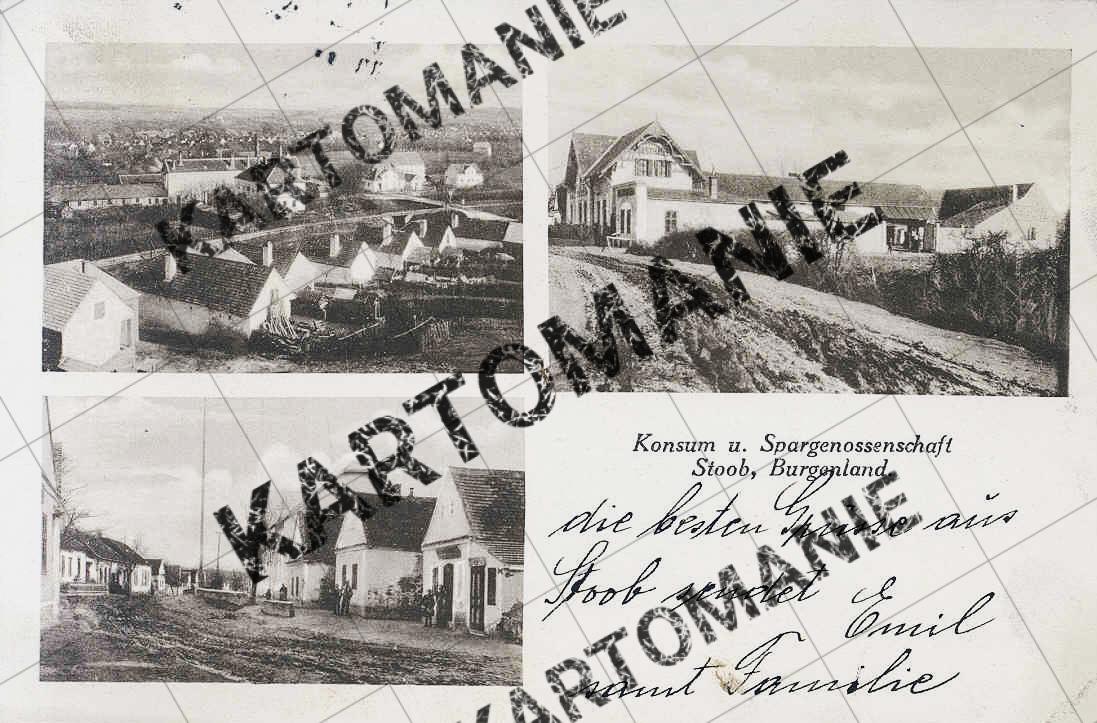 KARTOMANIE
KARTOMANIE
KARTOMANIE
Konsum u. Spargenossenschaft
Stoob, Burgenland.
die besten Grüsse aus
Stoob sendet
Emil
samt Familie